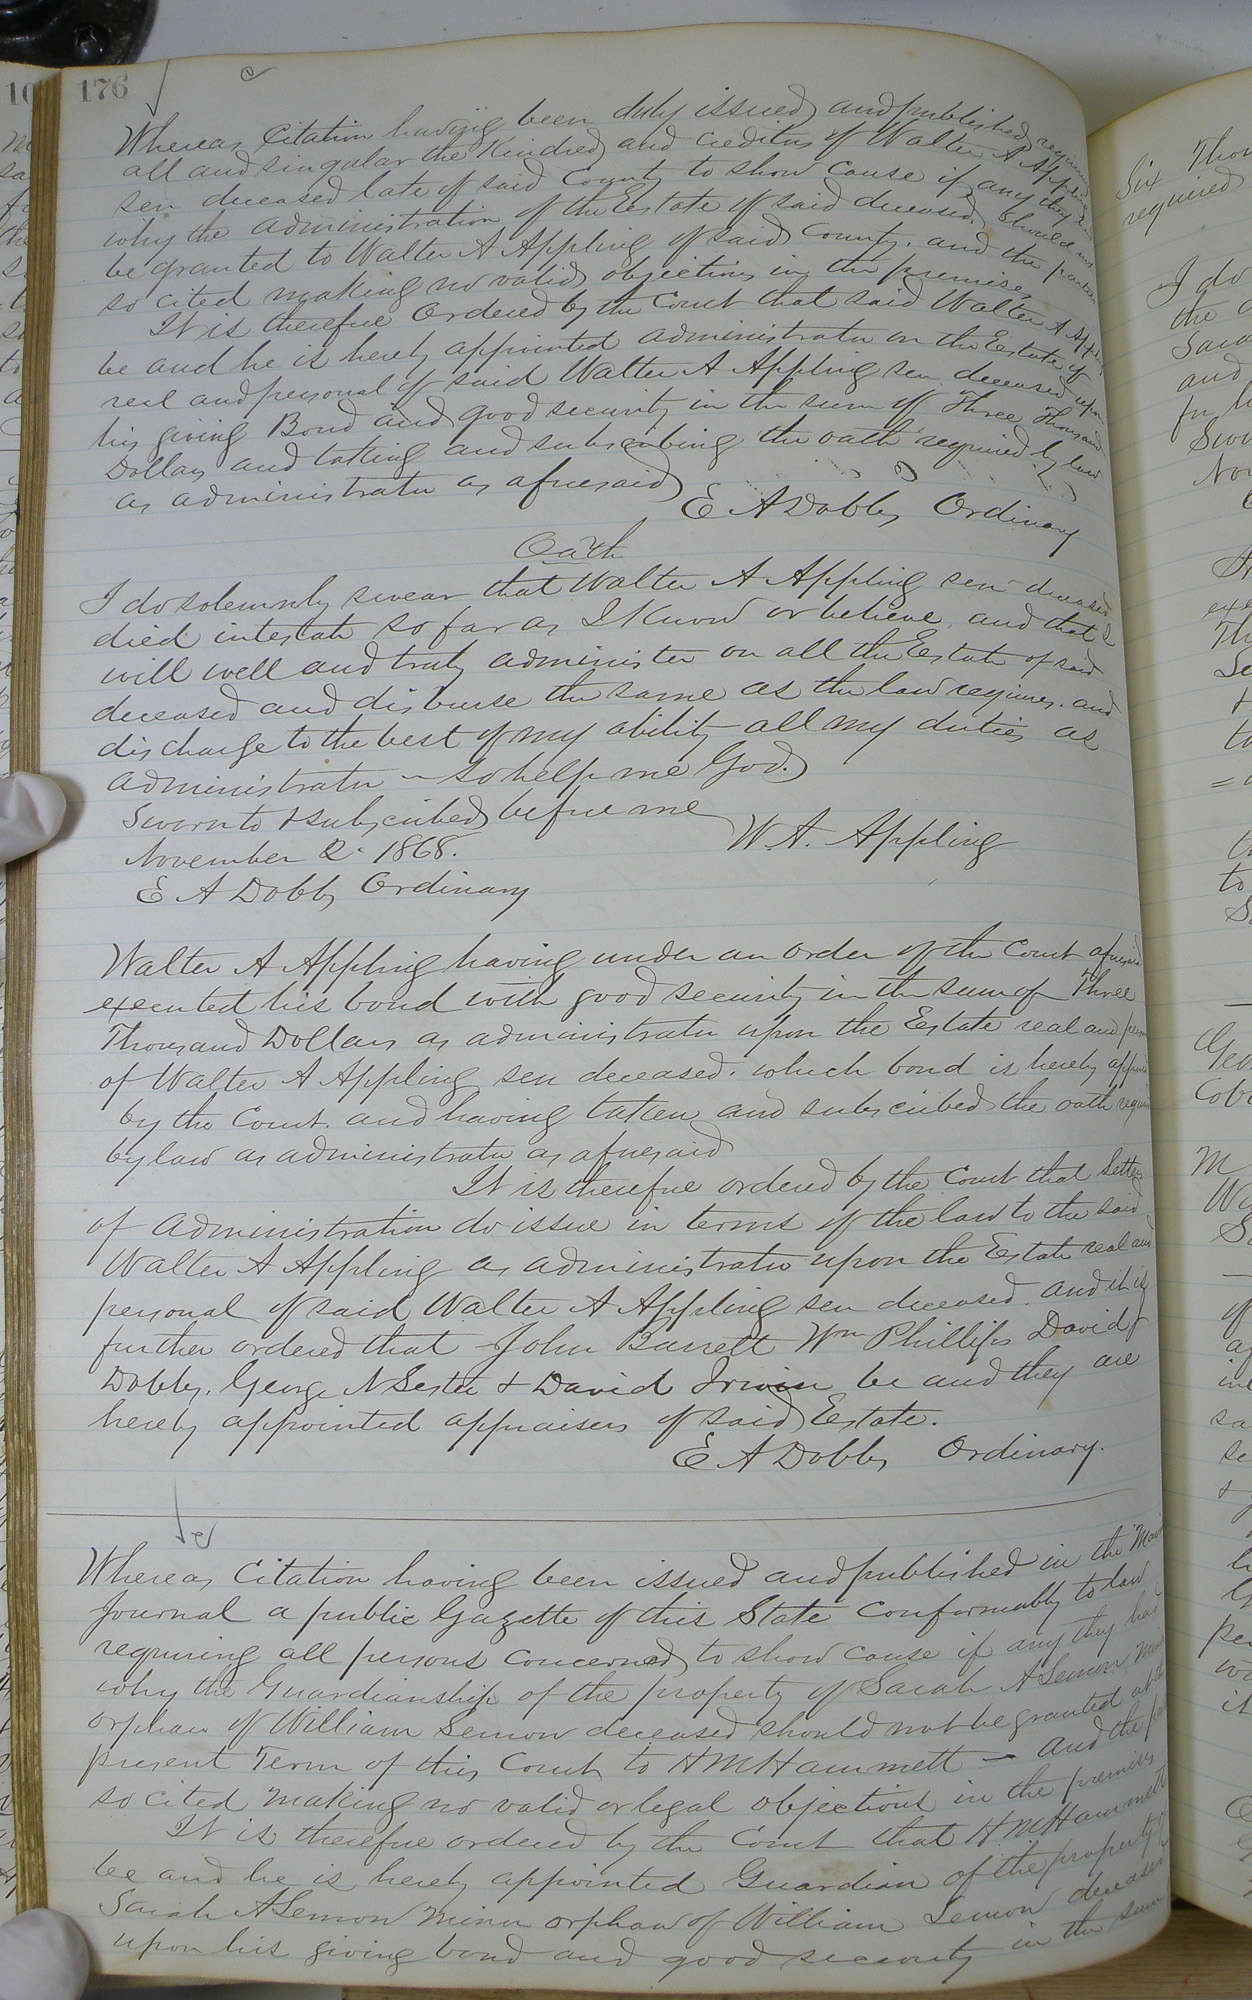 176
Whereas Citation having been duly issued and published requiring
all and singular the Kindred and creditors of Walter A Appling
sen deceased late of said County to show cause if any they
why the administration of the Estate of said deceased should not
be granted to Walter A Appling of said County. and the parties
so cited making no valid objections in the premises
It is therefore Ordered by the Court that said Walter A Appling
be and he is hereby appointed administrator on the Estate of
real and personal of said Walter A Appling sen deceased upon
his giving Bond and good security in the sum of Three Thousand
Dollars and taking and subscribing the oath required by law
as administrator as aforesaid
E A Dobbs Ordinary
Oath
I do solemnly swear that Walter A Appling sen deceased
died intestate so far as I know or believe, and that I
will well and truly administer on all the Estate of said
deceased and disburse the same as the law requires. and
discharge to the best of my ability all my duties as
administrator - so help me God.
Sworn to & subscribed before me
W. A. Appling
November 2. 1868.
E A Dobbs Ordinary
Walter A Appling having under an order of the Court aforesaid
executed his bond with good security in the sum of Three
Thousand Dollars as administrator upon the Estate real and
of Walter A Appling sen deceased. which bond is hereby
by the Court. and having taken and subscribed the oath
by law as administrator as aforesaid
It is therefore ordered by the Court that letters
of administration do issue in terms of the law to the said
Walter A Appling as administrator upon the Estate real and
personal of said Walter A Appling sen deceased. and it is
further ordered that John Barrett Wm Phillips David
Dobbs. George N Lester & David Irwin be and they are
hereby appointed appraisers of said Estate.
E A Dobbs Ordinary.
Whereas Citation having been issued and published in the
Journal a public Gazette of this State conformably to law
requiring all persons concerned to show cause if any they have
why the Guardianship of the property of Sarah A Lemon
orphan of William Lemon deceased should not be granted at the
present Term of this Court to H M Hammett - and the
so cited making no valid or legal objections in the premises
It is therefore ordered by the Court that H. M Hammett
be and he is hereby appointed Guardian of the property of
Sarah A Lemon minor orphan of William Lemon deceased
upon his giving bond and good security in the sum
Six
required
I do
the
and